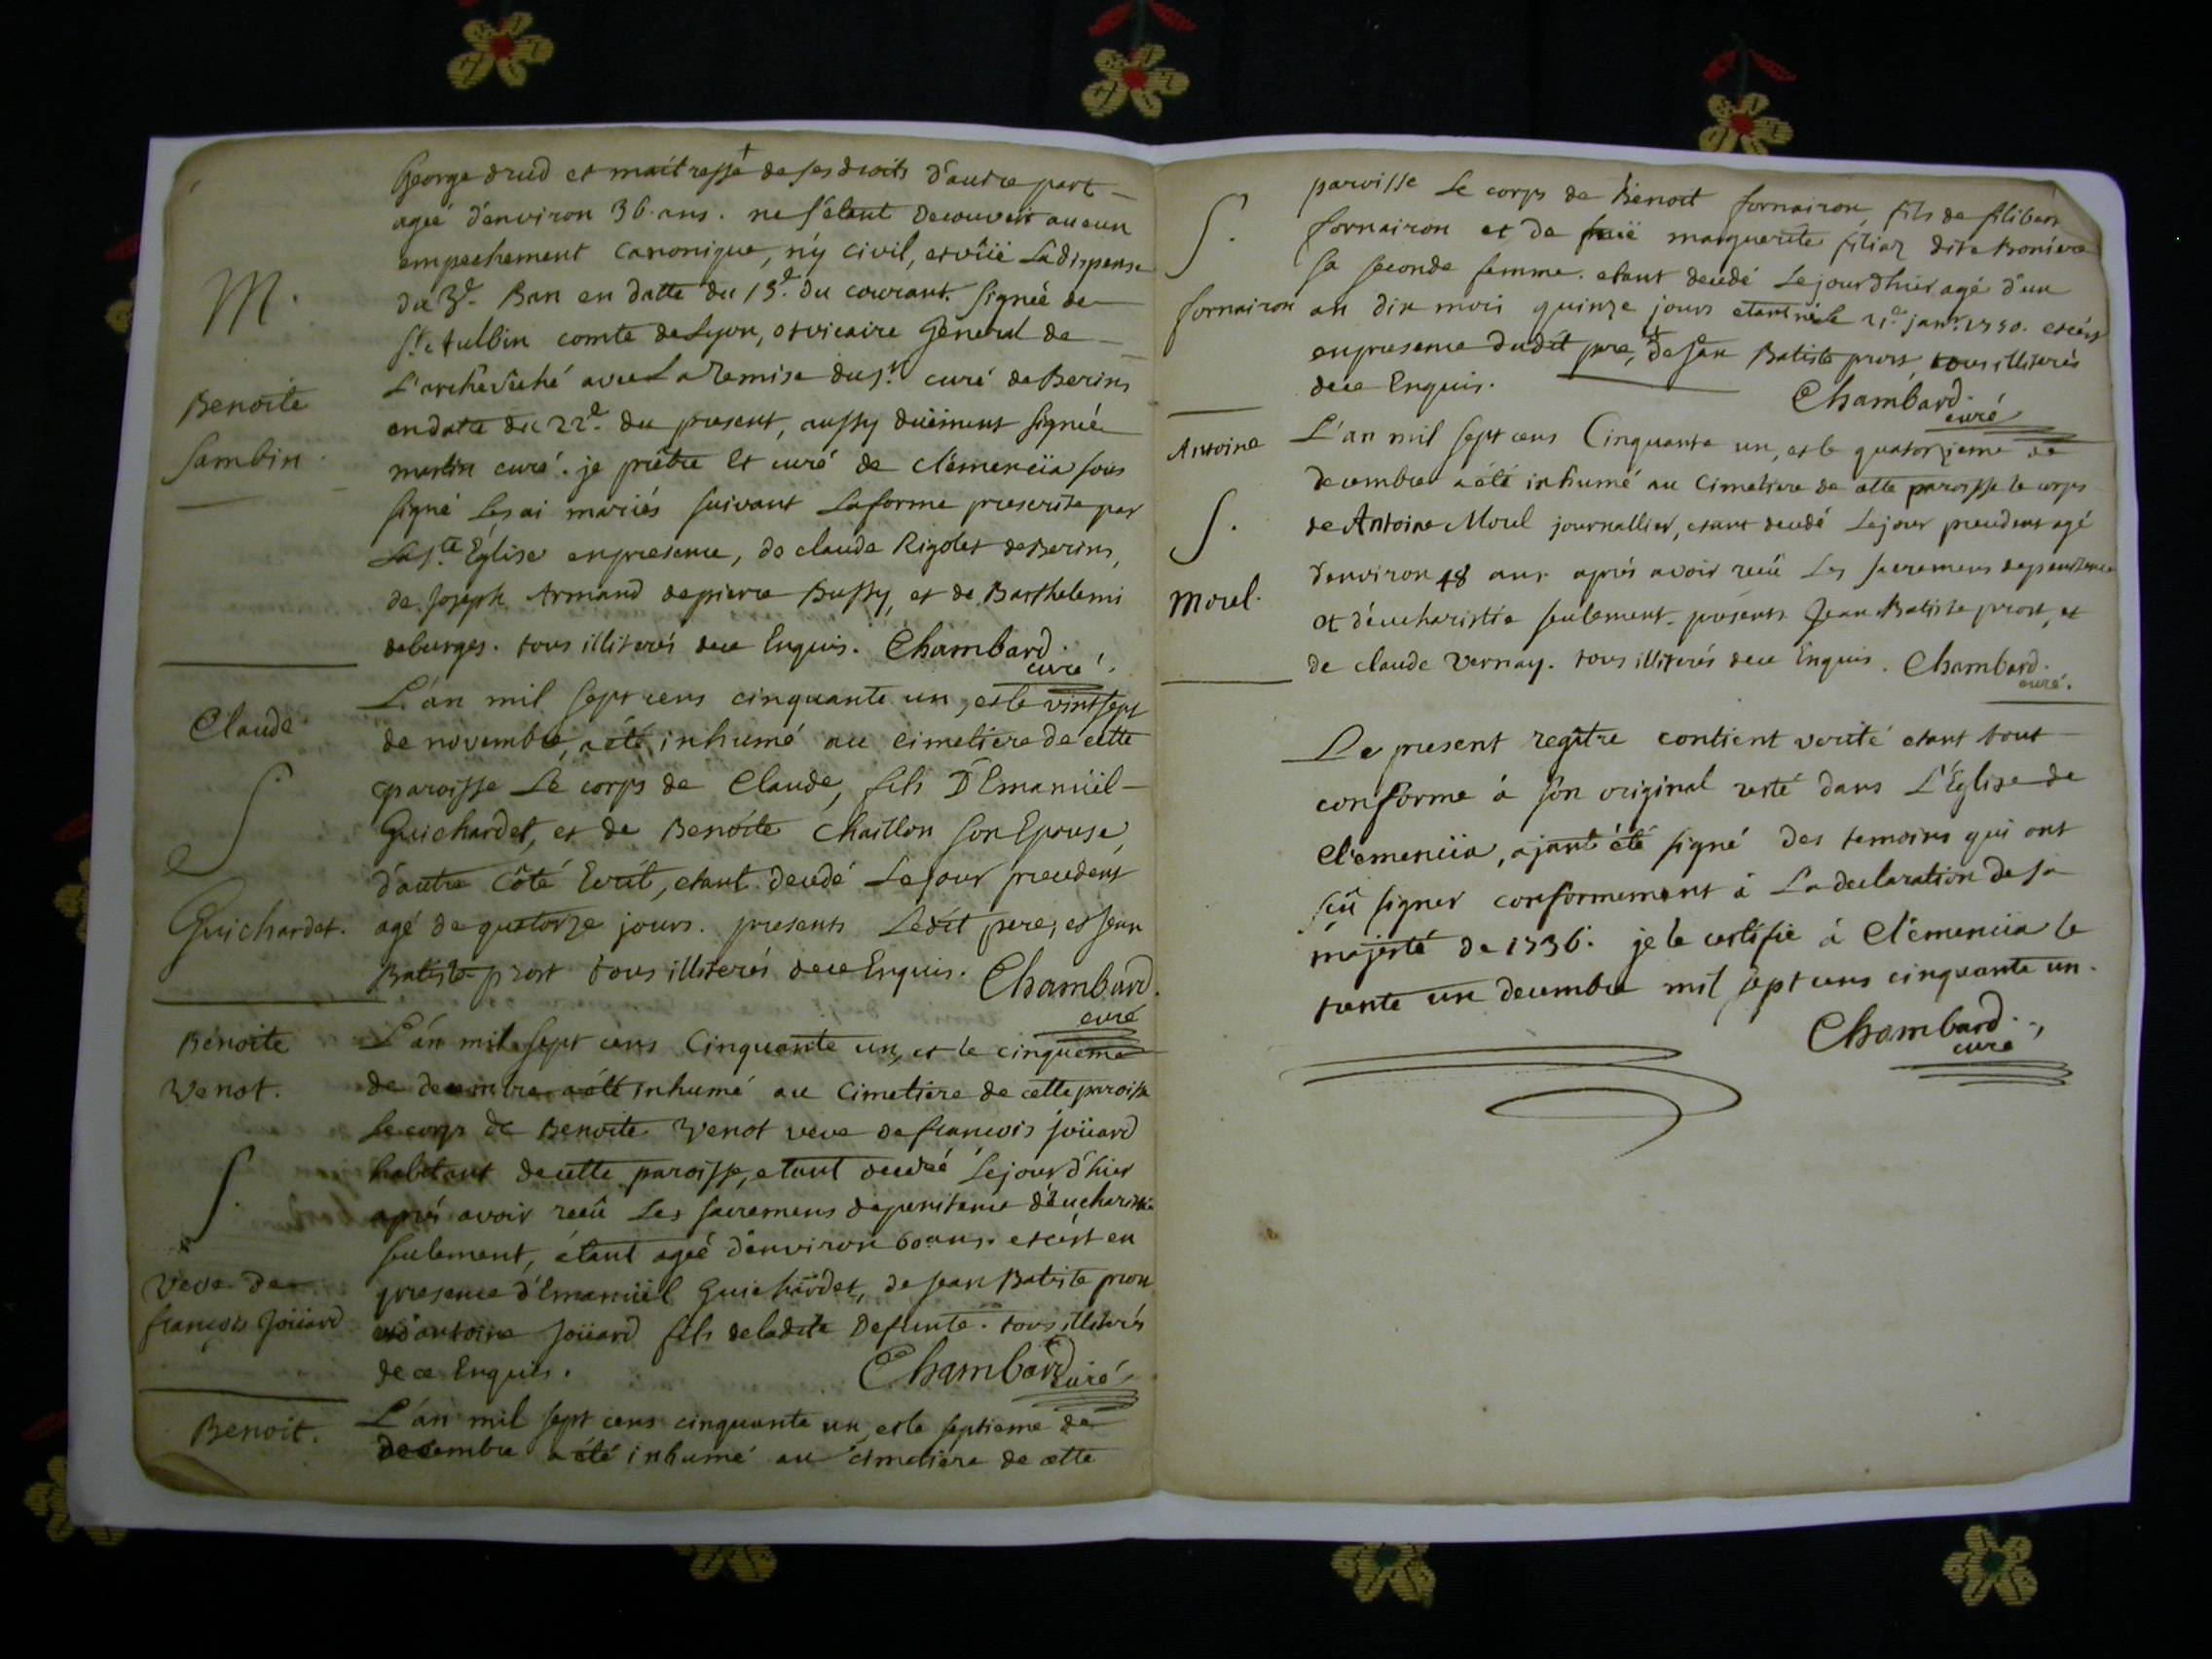 George drud et maitresse de ses droits d'autre part
ageé d'environ 36. ans. ne s'etant decouvert aucun
empechement canonique, n'y civil, et vûïe La dispense
du 3e. Ban en datte du 19e. du courant. signeé de
comte de Lyon, et vicaire General de
L'archêvêché avec La Remise du sr. curé de Berins
en datte du 22e. du present, aussy duëment signeé
martin curé. je prêtre Et curé de clémenciia sous
signé Les ai mariés suivant La forme prescrite par
La ste Église en presence, de claude Rigolet de Berins,
de Joseph Armand de pierre Bussy, et de Barthelemi
deburges. tous illiterés de ce Enquis. Chambard
curé
M.
Benoite
Sambin
Claude
S
Guichardet.
L'an mil sept cens cinquante un, et le vint sept
de novembre, a été inhumé au cimetiere de cette
paroisse Le corps de Claude, fils D'Emanüel
Guichardet, et de Benoîte Chaillon son Epouse,
d'autre Côté Ecrit, etant decedé Le jour precedent
agé de quatorze jours. presents Ledit pere, et jean
Batiste prost tous illiterés de ce Enquis. Chambard.
curé
Benoite
Venot.
S.
Veve de
françois Joüard
L'an mil sept cens Cinquante un, et le cinquéme
de decembre a été inhumé au Cimetiere de cette paroisse
Le corps de Benoite Venot veve de francois joüard
habitant de cette paroisse, etant decedeé Le jour d'hier
aprés avoir reçû Les sacremens de penitence d'Eucharistie
seulement, étant ageé d'environ 60 ans. et c'est en
presence d'Emanüel Guichardet, de jean Batiste prost
et d'antoine joüard fils de ladite Defunte. tous illiterés
de ce Enquis. Chambard
curé
Benoit.
L'an mil sept cens cinquante un et le septieme de
decembre a été inhumé au cimetiere de cette
paroisse Le corps de Benoit fornairon, fils de filibert
fornairon et de marguerite filiaz dite Boniere
sa seconde femme. etant decedé Le jour d'hier agé d'un
an dix mois quinze jours etant né Le 21e. janr. 1750. et c'est
en presence dudit pere, de jean Batiste prost, tous illiterés
de ce Enquis. Chambard
curé
S.
fornairon
Antoine
S.
Morel.
L'an mil sept cens Cinquante un, et le quatorzieme de
decembre a été inhumé au Cimetiere de cette paroisse le corps
de Antoine Morel journallier, etant decedé Le jour precedent agé
d'environ 48 ans aprés avoir reçû Les sacremens de penitence
et d'eucharistie seulement. présents Jean Batiste prost, et
de claude Vernay. tous illiterés de ce Enquis. Chambard.
curé.
Le present regître contient verité etant tout
conforme à son original resté dans L'Eglise de
Clémenciia, ajant été signé des temoins qui ont
sçû signer conformement à La declaration de sa
majesté de 1736. je le certifie à Clémenciia le
trente un decembre mil sept cens cinquante un.
Chambard.
curé